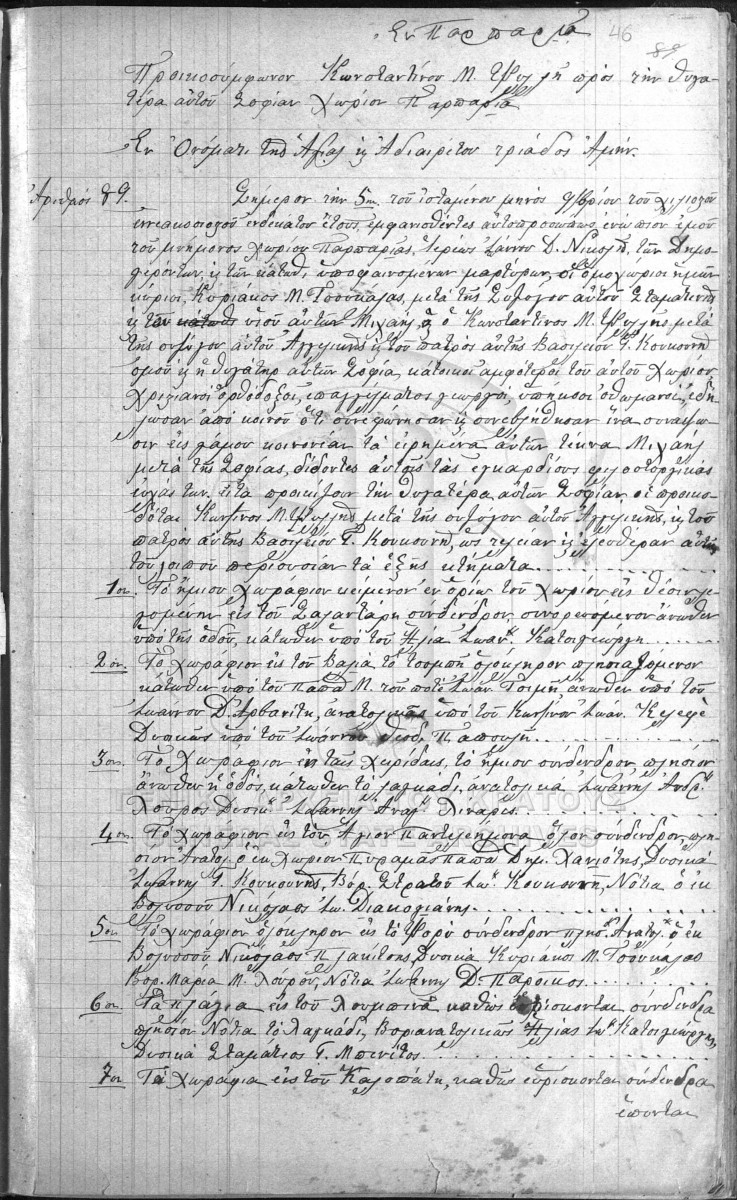 Εν Παρπαριᾷ 46
89
Προικοσύμφωνον Κωνσταντίνου Μ. Ψυλλῆ πρὸς τὴν θυγα-
τέρα αὐτοῦ Σοφίαν Χωρίον Παρπαριᾶ
Ἐν Ὀνόματι τῆς Ἁγίας κ Ἀδιαιρέτου τριάδος Ἀμήν.
Ἀριθμὸς 89. Σήμερον τὴν 5ην τοῦ ἱσταμένου μηνὸς 9βρίου τοῦ χιλιοστοῦ
ἐννεακοσιοστοῦ ἑνδεκάτου ἔτους, ἐμφανισθέντες αὐτοπροσώπως, ἐνώπιον ἐμοῦ
τοῦ μνήμονος χωρίου Παρπαριᾶς, Ἱερέως Ἰωάννου Δ. Νικολῆ, τῶν Δημο-
γερόντων, κ τῶν κάτωθι ὑποφαινομένων μαρτύρων, οἱ ὁμοχώριοι ἡμῶν
κύριοι, Κυριάκος Μ. Τσουκάλας, μετὰ τῆς Συζύγου αὐτοῦ Σταματικῆς
κ τοῦ υἱοῦ αὐτῶν Μιχαήλ, ὁ Κωνσταντῖνος Μ. Ψυλλῆς μετὰ
τῆς συζύγου αὐτοῦ Ἀγγελικῆς κ τοῦ πατρὸς αὐτῆς Βασιλείου Γ. Κουκουνῆ
ὁμοῦ κ ἡ θυγάτηρ αὐτῶν Σοφία, κάτοικοι ἀμφότεροι τοῦ αὐτοῦ Χωρίου
Χριστιανοὶ ὀρθόδοξοι, ἐπαγγέλματος γεωργοί, ὑπήκοοι ὀθωμανοί, ἐδή-
λωσαν ἀπὸ κοινοῦ ὅτι συνεφώνησαν κ συνεβιβάσθησαν ἵνα συνάψω-
σιν εἰς γάμου κοινωνίαν τὰ εἰρημένα αὐτῶν τέκνα Μιχαὴλ
μετὰ τῆς Σοφίας, δίδοντες αὐτοῖς τὰς ἐγκαρδίους φιλοστοργικὰς
εὐχάς των. εἶτα προικίζουν τὴν θυγατέρα αὐτῶν Σοφίαν οἱ προικο-
δόται Κωντῖνος Μ. Ψυλλῆς μετὰ τῆς συζύγου αὐτοῦ Ἀγγελικῆς, κ τοῦ
πατρὸς αὐτῆς Βασιλείου Γ. Κουκουνῆ, ὡς τελείαν κ ἐλευθέραν αὐτῆς
τοῦ λοιποῦ περιουσίαν τὰ ἑξῆς κτήματα.
1ον Τὸ ἥμισυ χωράφιον κείμενον ἐν ὁρίῳ τοῦ χωρίου εἰς θέσιν λε-
γομένην εἰς τοῦ Σαλαντάρη σύνδενδρον, συνορευόμενον ἄνωθεν
ὑπὸ τῆς ὁδοῦ, κάτωθεν ὑπὸ τοῦ Ἠλία Ἰωάν. Κατσιγεώργη.
2ον Τὸ χωράφιον εἰς τοῦ Βαλιᾶ τὸ τσομπῆ ὁλόκληρον πλησιαζόμενον
κάτωθεν ὑπὸ τοῦ Παπᾶ Μ. τοῦ ποτὲ Ἰωάν. Τσιμῆ, ἄνωθεν ὑπὸ τοῦ
Ἰωάννου Δ. Ἀρβανίτη, ἀνατολικῶς ὑπὸ τοῦ Κωντίνου Ἰωάν. Κελεφὲ
Δυσικῶς ὑπὸ τοῦ Ἰωάννου Θεοδ. Παπουλῆ.
3ον Τὸ χωράφιον ἐν ταῖς Χειρίδαις, τὸ ἥμισυ σύνδενδρον πλησίον
ἄνωθεν ἡ ὁδός, κάτωθεν τὸ λαγκάδι, ἀνατολικὰ Ἰωάννης Ἀνδρ.
Λοῦρος Δυσικ. Ἰωάννης Ἀναγ. Λιναρᾶς.
4ον Τὸ χωράφιον εἰς τὸν Ἅγιον Παντελεήμονα ὅλον σύνδενδρον, πλη-
σίον Ἀνατολ. ὁ ἐκ Χωρίου Πυραμᾶς Παπᾶ Δημ. Χανιώτης, Δυσικὰ
Ἰωάννης Γ. Κουκουνῆς, Βόρ. Στρατοῦ Ἰω. Κουκουνῆ, Νότια ὁ ἐκ
Βολισσοῦ Νικόλαος Ἰω. Διακογιάνης.
5ον Τὸ χωράφιον ὁλόκληρον εἰς τὸ Φορὺ σύνδενδρον πλησ. Ἀνατολ. ὁ ἐκ
Βολισσοῦ Νικόλαος Πλακίτσης, Δυσικὰ Κυριάκος Μ. Τσουκάλας
Βορ. Μαρία Μ. Λούρου, Νότια Ἰωάννης Δ. Πάροικος.
6ον Τὰ πλάγια εἰς τοῦ Λουμπινᾶ καθὼς εὑρίσκονται σύνδενδρα
πλησίον Νότια τὸ λαγκάδι, Βορανατολικῶς Ἠλίας Ἰω. Κατσιγεώργης,
Δυσικὰ Σταμάτιος Γ. Μπενέτος.
7ον Τὰ χωράφια εἰς τοῦ Καλοπάτη, καθὼς εὑρίσκονται σύνδενδρα
ἕπονται